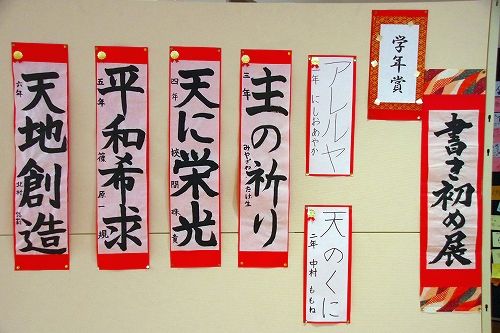 書き初め展
学年賞
アレルヤ
一年 にしおあやか
天のくに
二年 中村 ももね
主の祈り
三年
天に栄光
四年
平和希求
五年 篠原一颯
天地創造
六年 北村